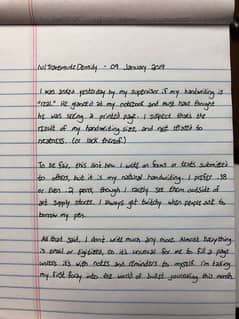 09 January 2019
I was asked yesterday by my supervisor if my handwriting is
"real." He glanced at my notebook and must have thought
he was seeing a printed page. I suspect thats the
result of my handwriting size, and not related to
neatness. (or lack thereof)
To be fair, this isn't how I write on forms or texts submitted
to others, but it is my natural handwriting. I prefer .38
or even .2 pens, though I rarely see them outside of
art supply stores. I always get twitchy when people ask to
borrow my pen.
All that said, I don't write much any more. Almost everything
is email or digitized, so it's unusual for me to fill a page
unless it's with notes and reminders to myself. I'm taking
my first foray into the world of bullet journaling this month.